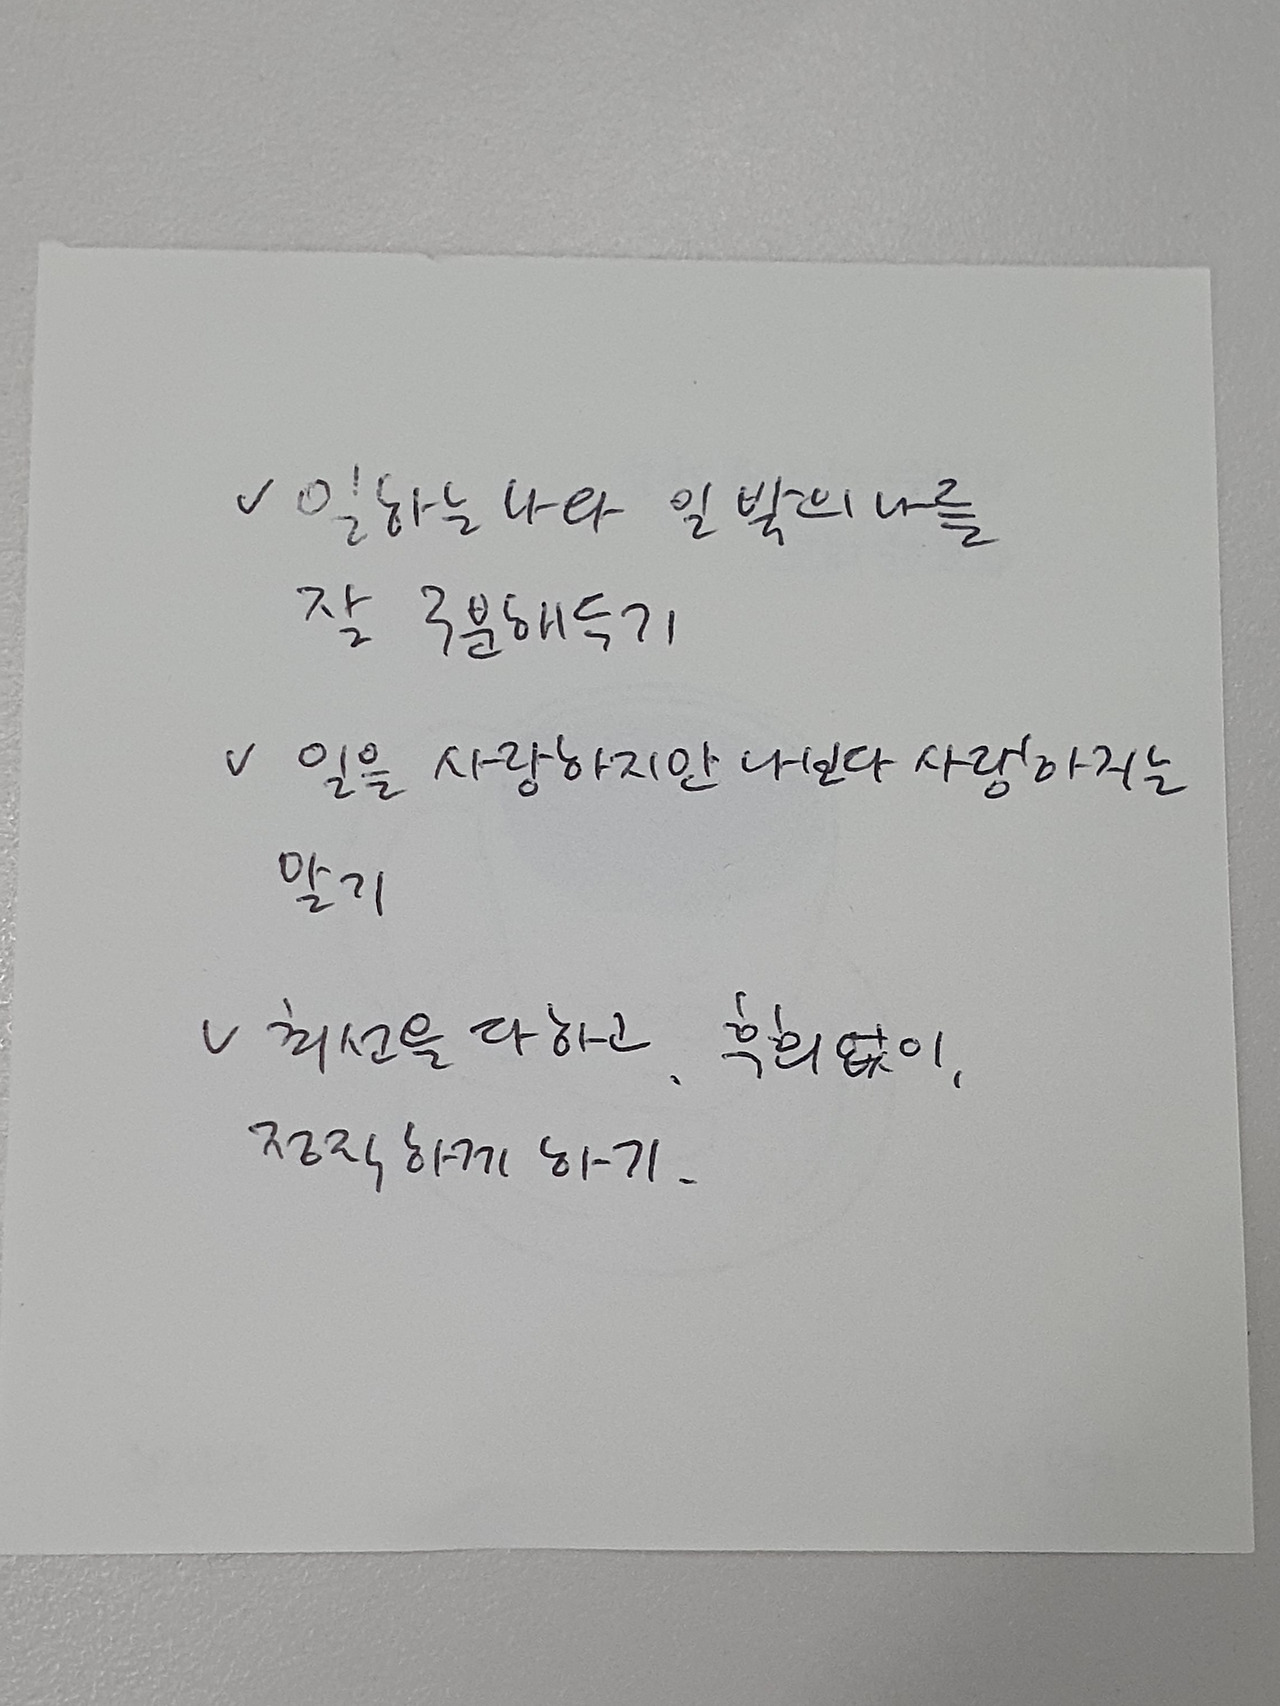 ✓ 일하는 나와 일 밖의 나를
잘 구분해두기
✓ 일을 사랑하지만 나보다 사랑하지는
말기
✓ 최선을 다하고, 후회없이,
정직하게 하기.